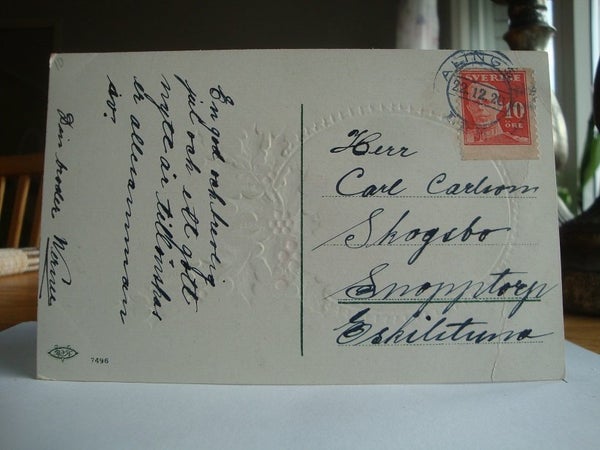 En god och trevlig
jul och ett gott
nytt år tillönskas
er allesamman
av.
Din broder Werner
7496
ALINGS
22.12.20
SVERIGE
10
ÖRE
Herr
Carl Carlsom
Skogsbo
Snopptorp
Eskilstuna